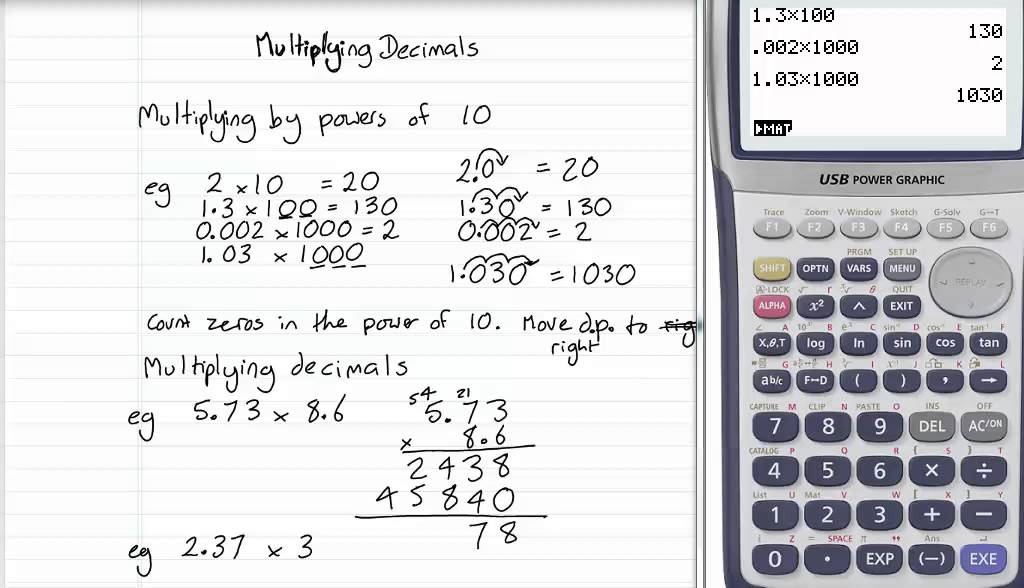 Multiplying Decimals
Multiplying by powers of 10
eg 2 × 10 = 20 2.0 = 20
1.3 × 100 = 130 1.30 = 130
0.002 × 1000 = 2 0.002 = 2
1.03 × 1000 1.030 = 1030
Count zeros in the power of 10. Move d.p. to rig
right
Multiplying decimals
54 21
eg 5.73 × 8.6 5.73
× 8.6
2438
45840
78
eg 2.37 × 3
1.3×100
130
.002×1000
2
1.03×1000
1030
▶MAT
USB POWER GRAPHIC
Trace Zoom V-Window Sketch G-Solv G↔T
F1 F2 F3 F4 F5 F6
PRGM SET UP
SHIFT OPTN VARS MENU
A-LOCK √ r ˣ√ θ QUIT
ALPHA x² ^ EXIT REPLAY
∠ A 10ˣ B eˣ C sin⁻¹ D cos⁻¹ E tan⁻¹ F
X,θ,T log ln sin cos tan
G H I J K L
ab/c F↔D ( ) , →
CAPTURE M CLIP N PASTE O INS OFF
7 8 9 DEL AC/ON
CATALOG P Q R { S } T
4 5 6 × ÷
List U Mat V W [ X ] Y
1 2 3 + −
i Z = SPACE π " Ans
0 . EXP (−) EXE